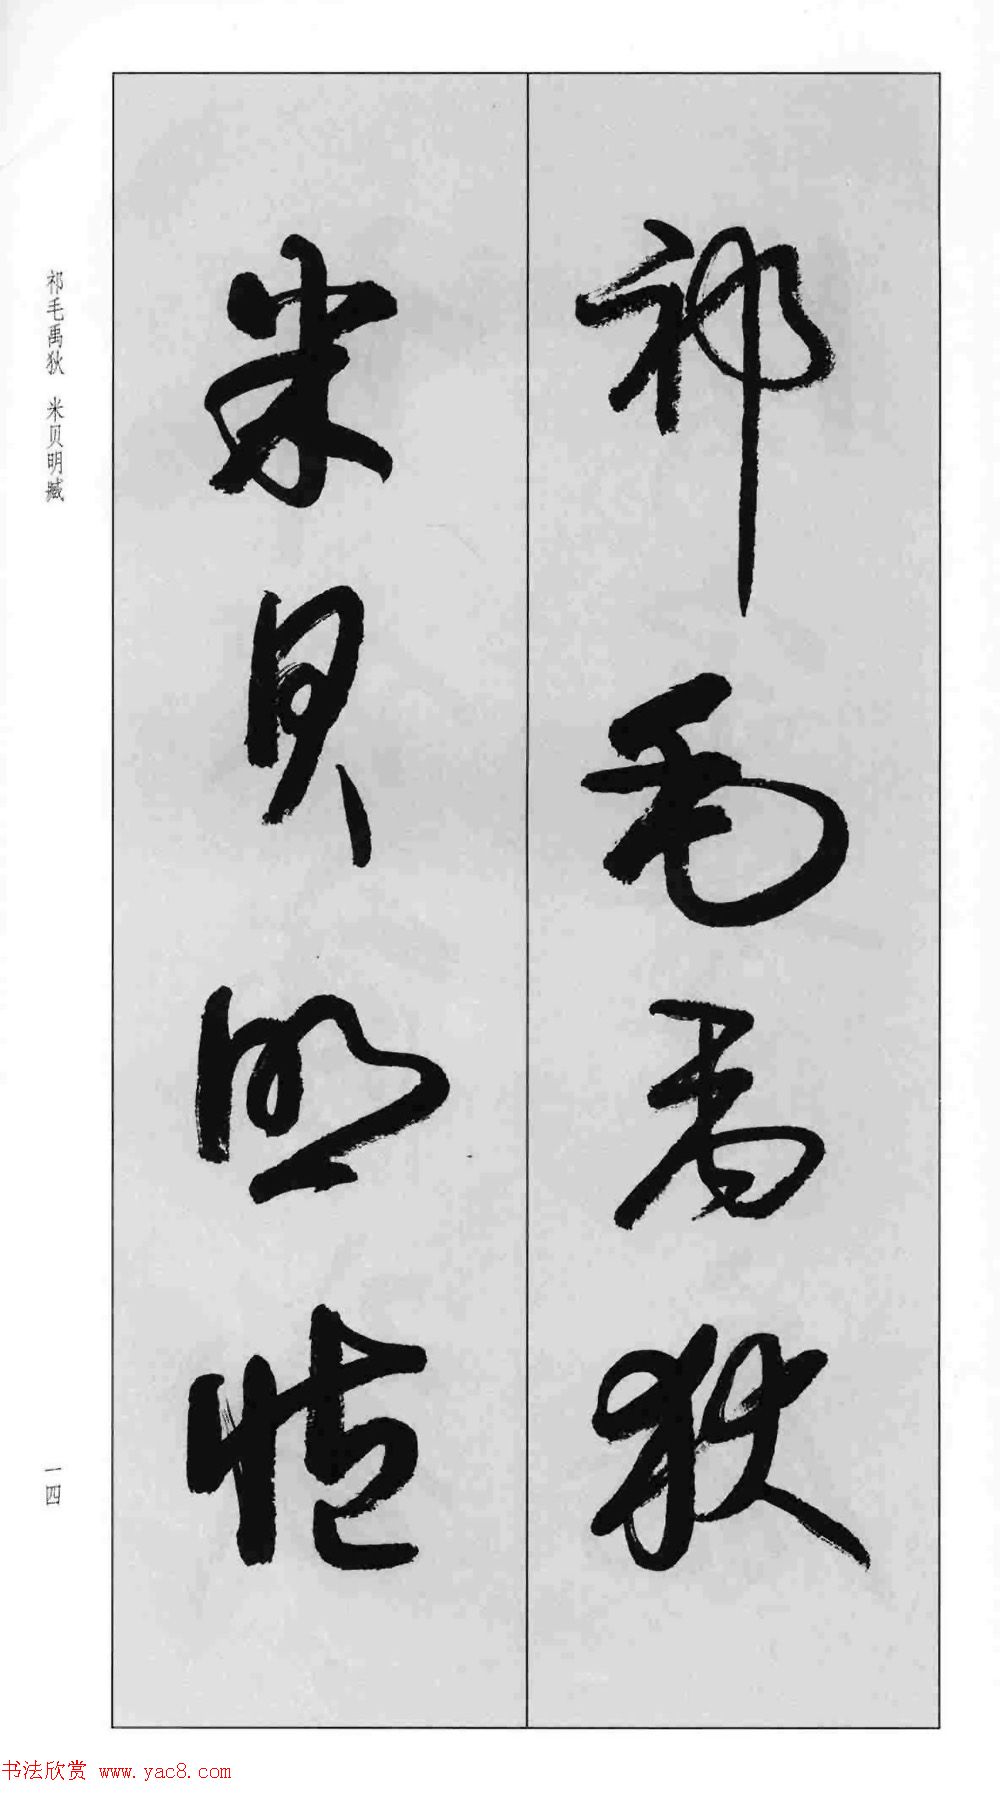 祁毛禹狄
米贝明臧
祁毛禹狄 米贝明臧
一四
书法欣赏 www.yac8.com